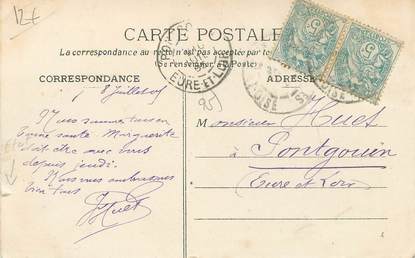 12€
CARTE POSTALE
La correspondance au recto n'est pas acceptée par tous
Se renseigner à la Poste
CORRESPONDANCE
ADRESSE
EURE-ET-LOIR
OISE
95)
8 Juillet 05
Nous sommes tous en
bonne santé Marguerite
doit être avec vous
depuis jeudi.
Nous vous embrassons
bien tous
Huet
Monsieur Huet
à Pontgouin
Eure et Loir